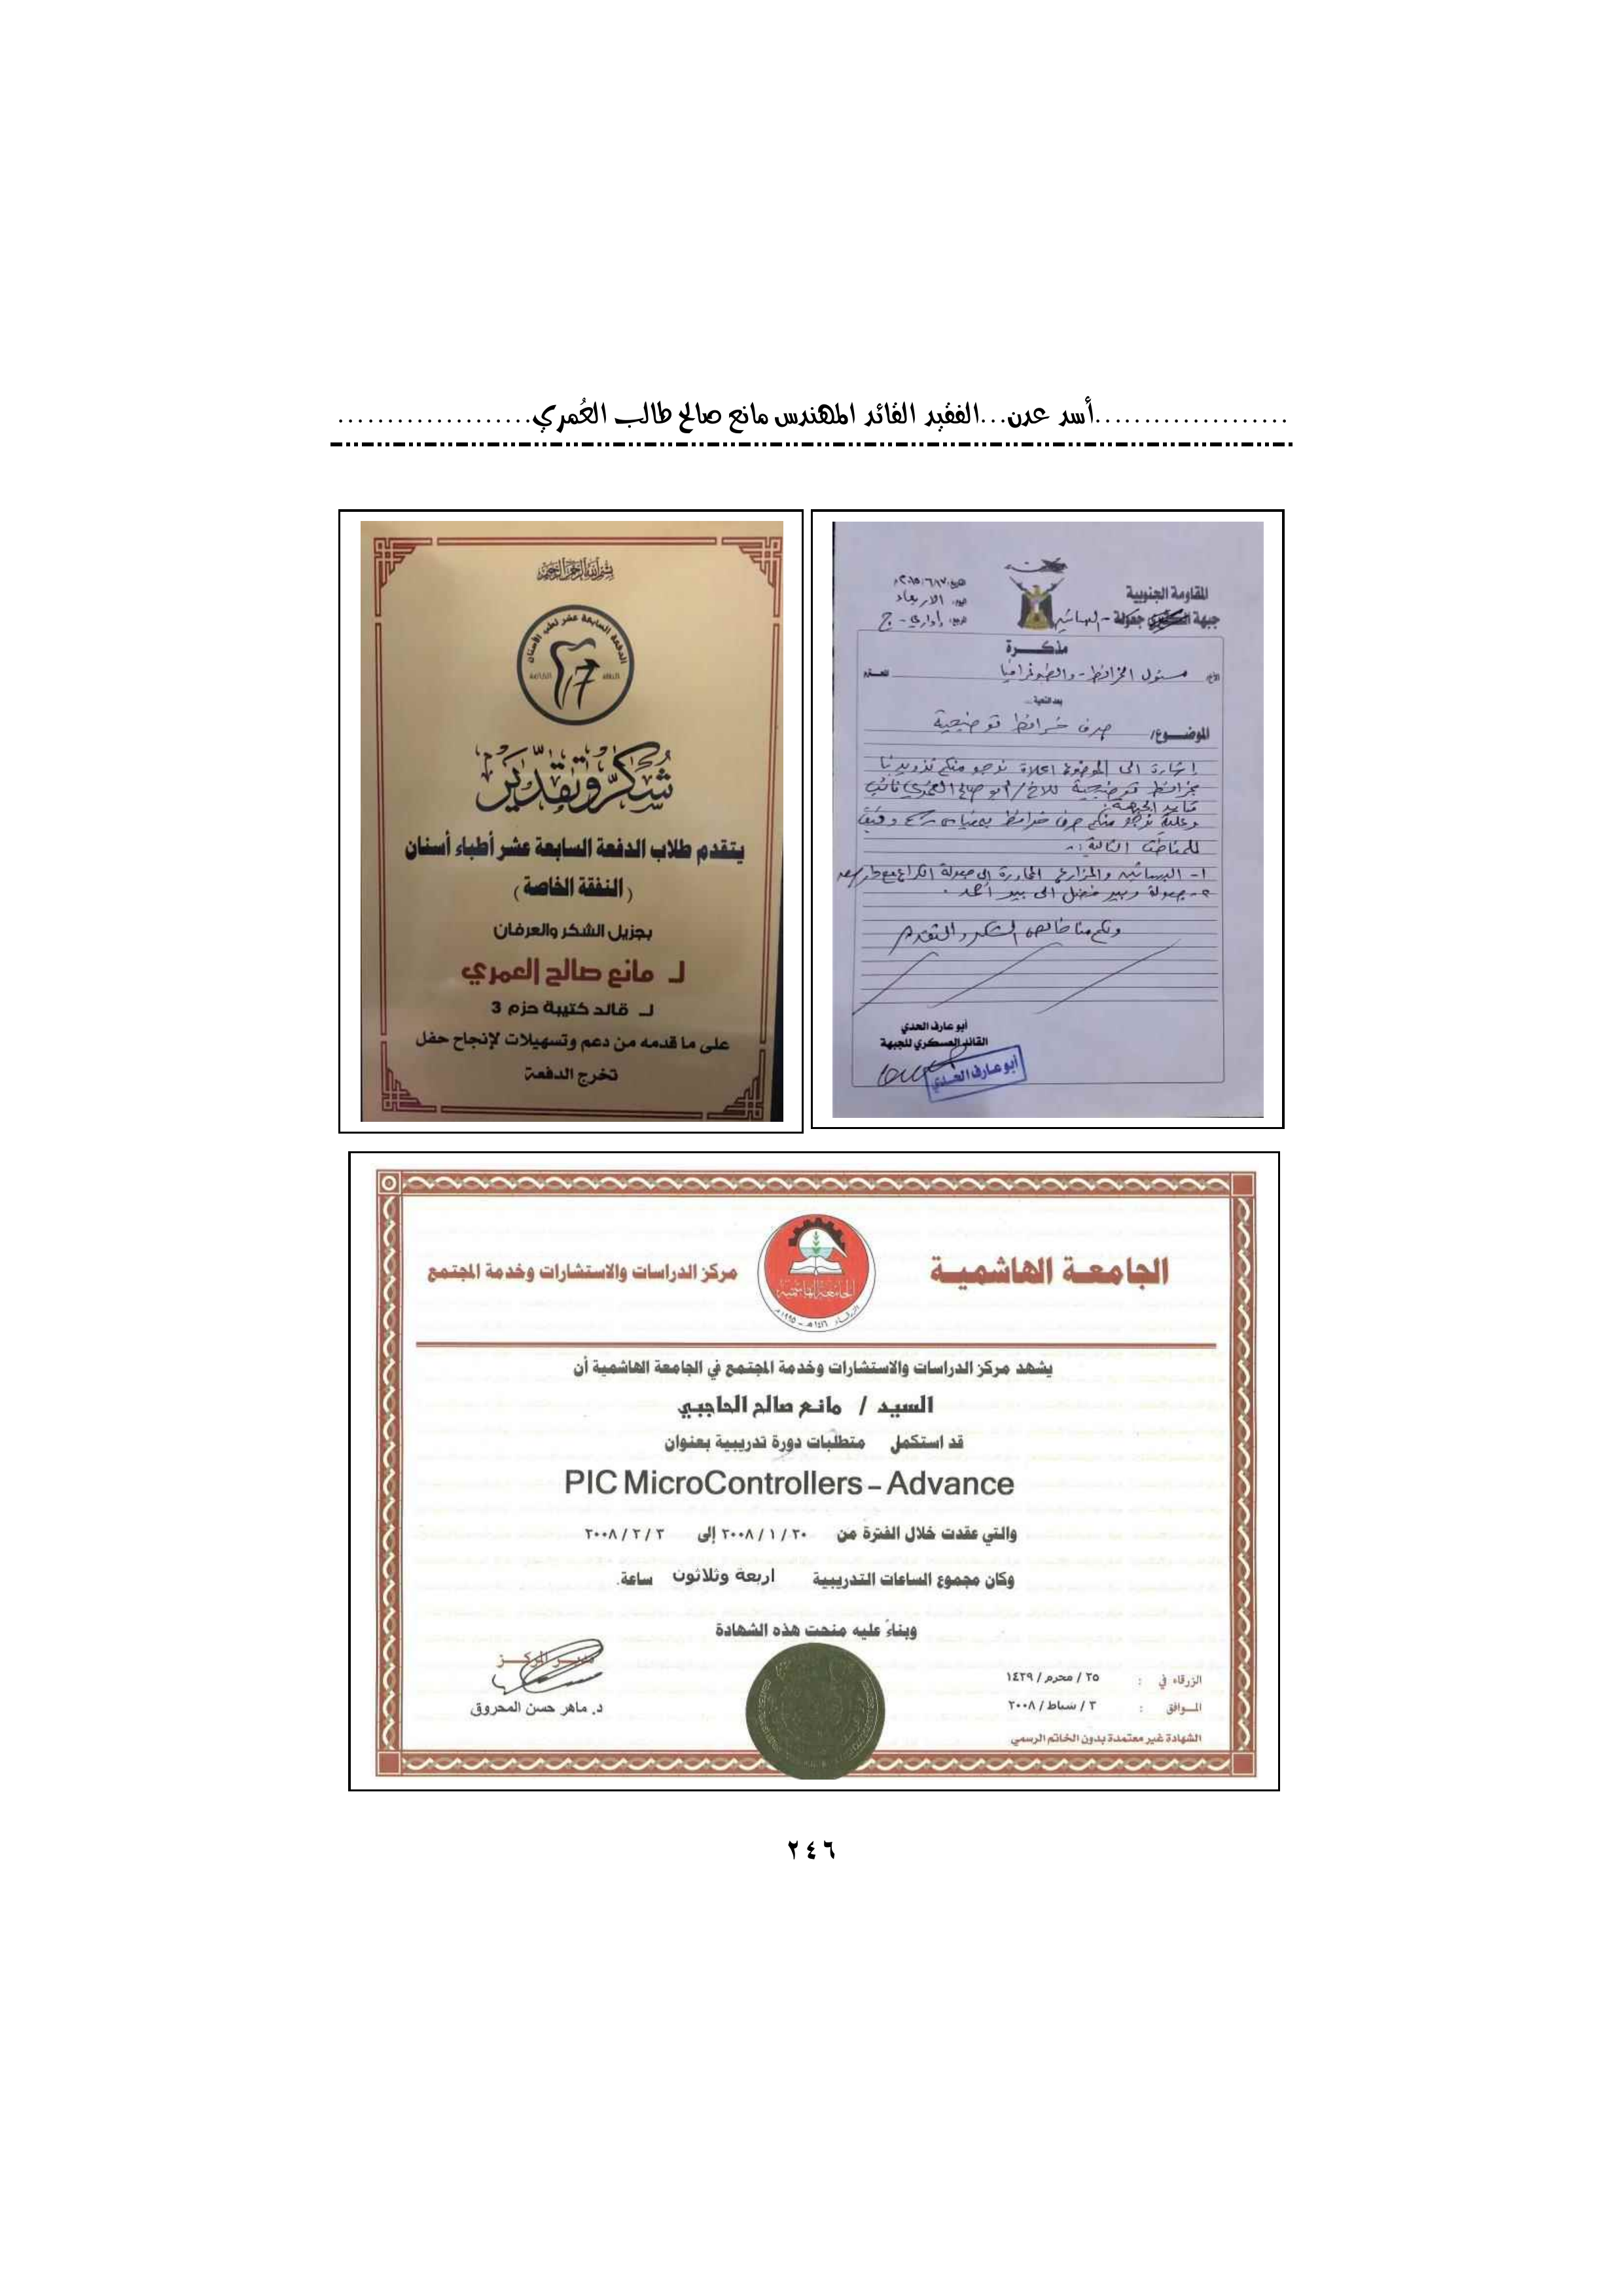 ....................أسد عدن...الفقيد القائد المهندس مانع صالح طالب العُمري....................
المقاومة الجنوبية
جبهة جعولة - البساتين
التاريخ
اليوم: الاربعاء
مذكــــرة
الأخ/ مسئول الخرائط - والطبوغرافيا المحترم
بعد التحية...
الموضــوع/ صرف خرائط توضيحية
إشارة الى الموضوع اعلاه نرجو منكم تزويدنا
بخرائط توضيحية للاخ / أبو صالح العمري نائب
قايد الجبهة.
وعليه نرجو منكم صرف خرائط بمقياس
للمناطق التالية:-
١- البساتين والمزارع المجاورة إلى جعولة
٢- جعولة وبير فضل الى بير أحمد.
ولكم منا خالص الشكر والتقدير
أبو عارف العدي
القائد العسكري للجبهة
أبو عارف العدي
بسم الله الرحمن الرحيم
الدفعة السابعة عشر لطب الأسنان
17
شكر وتقدير
يتقدم طلاب الدفعة السابعة عشر أطباء أسنان
(النفقة الخاصة)
بجزيل الشكر والعرفان
لـ مانع صالح العمري
لـ قائد كتيبة حزم 3
على ما قدمه من دعم وتسهيلات لإنجاح حفل
تخرج الدفعة
الجامعة الهاشمية
الجامعة الهاشمية
الزرقاء ١٤١٦هـ - ١٩٩٥م
مركز الدراسات والاستشارات وخدمة المجتمع
يشهد مركز الدراسات والاستشارات وخدمة المجتمع في الجامعة الهاشمية أن
السيد / مانع صالح الحاجبي
قد استكمل متطلبات دورة تدريبية بعنوان
PIC MicroControllers – Advance
والتي عقدت خلال الفترة من ٢٠ / ١ / ٢٠٠٨ إلى ٣ / ٢ / ٢٠٠٨
وكان مجموع الساعات التدريبية اربعة وثلاثون ساعة.
وبناءً عليه منحت هذه الشهادة
الزرقاء في : ٢٥ / محرم / ١٤٢٩
الموافق : ٣ / شباط / ٢٠٠٨
الشهادة غير معتمدة بدون الخاتم الرسمي
مدير المركز
د. ماهر حسن المحروق
٢٤٦